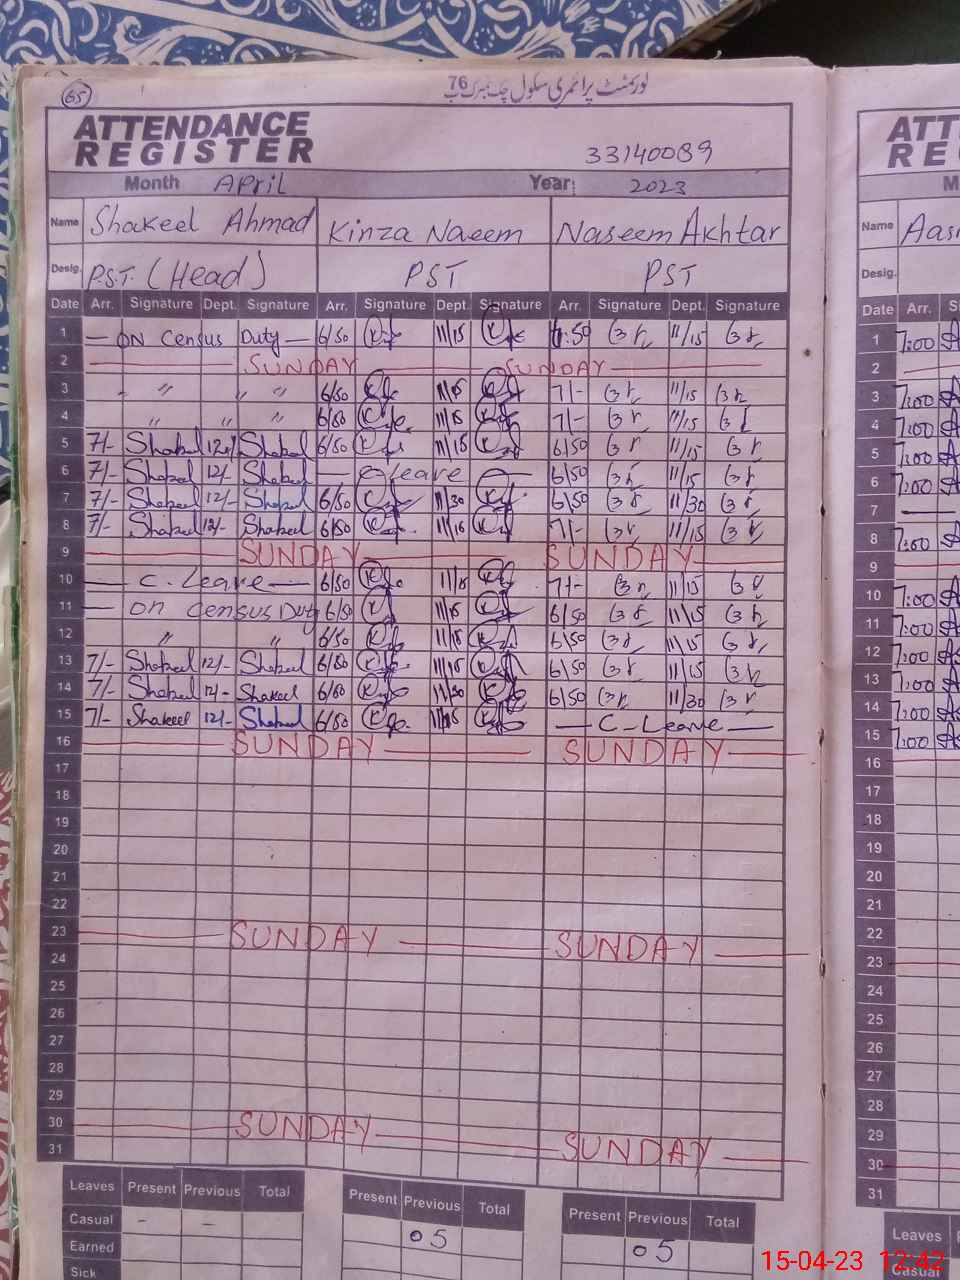 65
گورنمنٹ پرائمری سکول چک نمبر 76 گ ب
ATTENDANCE
REGISTER
33140089
Month April Year: 2023
Name Shakeel Ahmad Kinza Naeem Naseem Akhtar
Desig. P.S.T. (Head) PST PST
Date Arr. Signature Dept. Signature Arr. Signature Dept. Signature Arr. Signature Dept. Signature
1 — ON Census Duty — 6/50 11/15 6:50 11/15
2 SUNDAY SUNDAY
3 " " 6/50 11/15 7/- 11/15
4 " " 6/50 11/15 7/- 11/15
5 7/- Shakeel 12/- Shakeel 6/50 11/15 6/50 11/15
6 7/- Shakeel 12/- Shakeel — leave — 6/50 11/15
7 7/- Shakeel 12/- Shakeel 6/50 11/30 6/50 11/30
8 7/- Shakeel 12/- Shakeel 6/50 11/15 7/- 11/15
9 SUNDAY SUNDAY
10 — C. Leave — 6/50 11/15 7/- 11/15
11 — On Census Duty 6/50 11/15 6/50 11/15
12 " " 6/50 11/15 6/50 11/15
13 7/- Shakeel 12/- Shakeel 6/50 11/15 6/50 11/15
14 7/- Shakeel 12/- Shakeel 6/50 11/30 6/50 11/30
15 7/- Shakeel 12/- Shakeel 6/50 11/15 — C-Leave —
16 SUNDAY SUNDAY
17
18
19
20
21
22
23 SUNDAY SUNDAY
24
25
26
27
28
29
30 SUNDAY SUNDAY
31
Leaves Present Previous Total Present Previous Total Present Previous Total
Casual - - 05 05
Earned
Sick
ATT
RE
M
Name Aas
Desig.
Date Arr. S
1 7:00
2
3 7:00
4 7:00
5 7:00
6 7:00
7 —
8 7:00
9
10 7:00
11 7:00
12 7:00
13 7:00
14 7:00
15 7:00
16
17
18
19
20
21
22
23
24
25
26
27
28
29
30
31
Leaves P
Casual
15-04-23 12:42